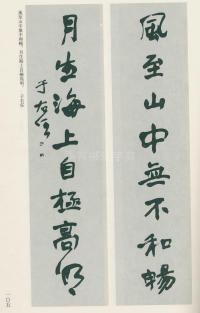 風至山中無不和暢
月出海上自極高明
于右任
一〇五